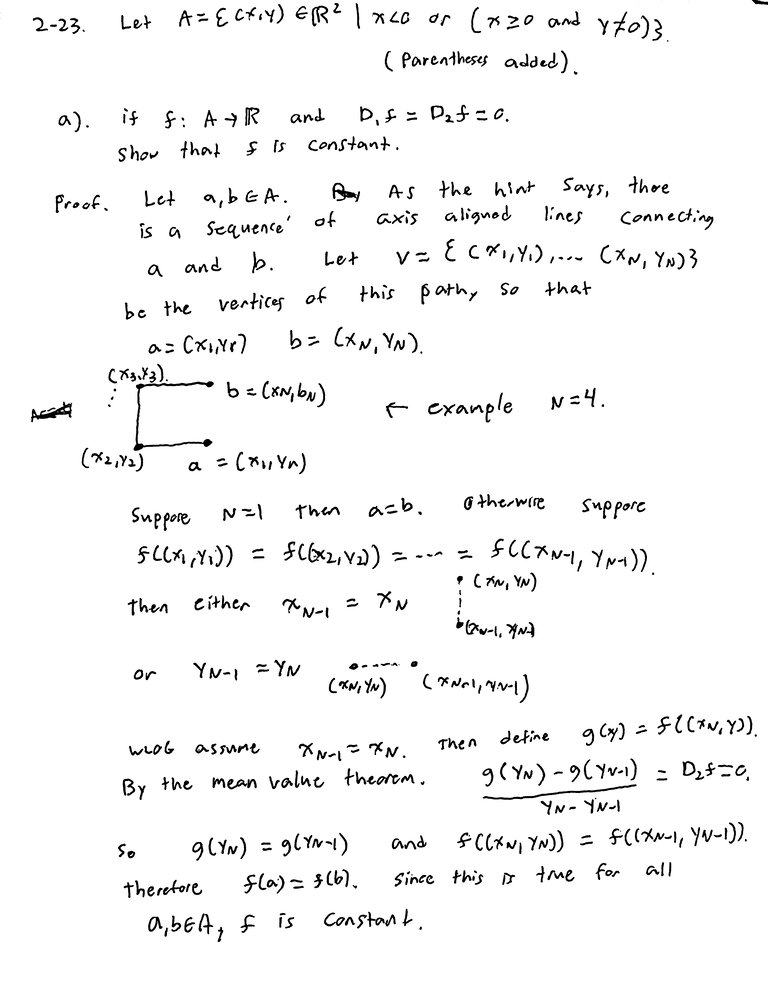 2-23. Let A = {(x,y) ∈ ℝ² | x<0 or (x≥0 and y≠0)}.
(Parentheses added).
a). if f: A→ℝ and D₁f = D₂f = 0.
Show that f is constant.
Proof. Let a,b∈A. As the hint says, there
is a sequence of axis aligned lines connecting
a and b. Let V = {(x₁,y₁),... (x_N, y_N)}
be the vertices of this path, so that
a = (x₁,y₁) b = (x_N, y_N).
(x₃,y₃).
b = (x_N, b_N)
← example N=4.
(x₂,y₂) a = (x₁, y_n)
Suppose N=1 then a=b. Otherwise suppose
f((x₁,y₁)) = f((x₂,y₂)) = ... = f((x_{N-1}, y_{N-1})).
(x_N, y_N)
then either x_{N-1} = x_N
(x_{N-1}, y_{N-1})
or y_{N-1} = y_N
(x_N, y_N) (x_{N-1}, y_{N-1})
WLOG assume x_{N-1} = x_N. Then define g(y) = f((x_N, y)).
By the mean value theorem. g(y_N) - g(y_{N-1}) / y_N - y_{N-1} = D₂f = 0.
So g(y_N) = g(y_{N-1}) and f((x_N, y_N)) = f((x_{N-1}, y_{N-1})).
therefore f(a) = f(b). Since this is true for all
a,b∈A, f is constant.